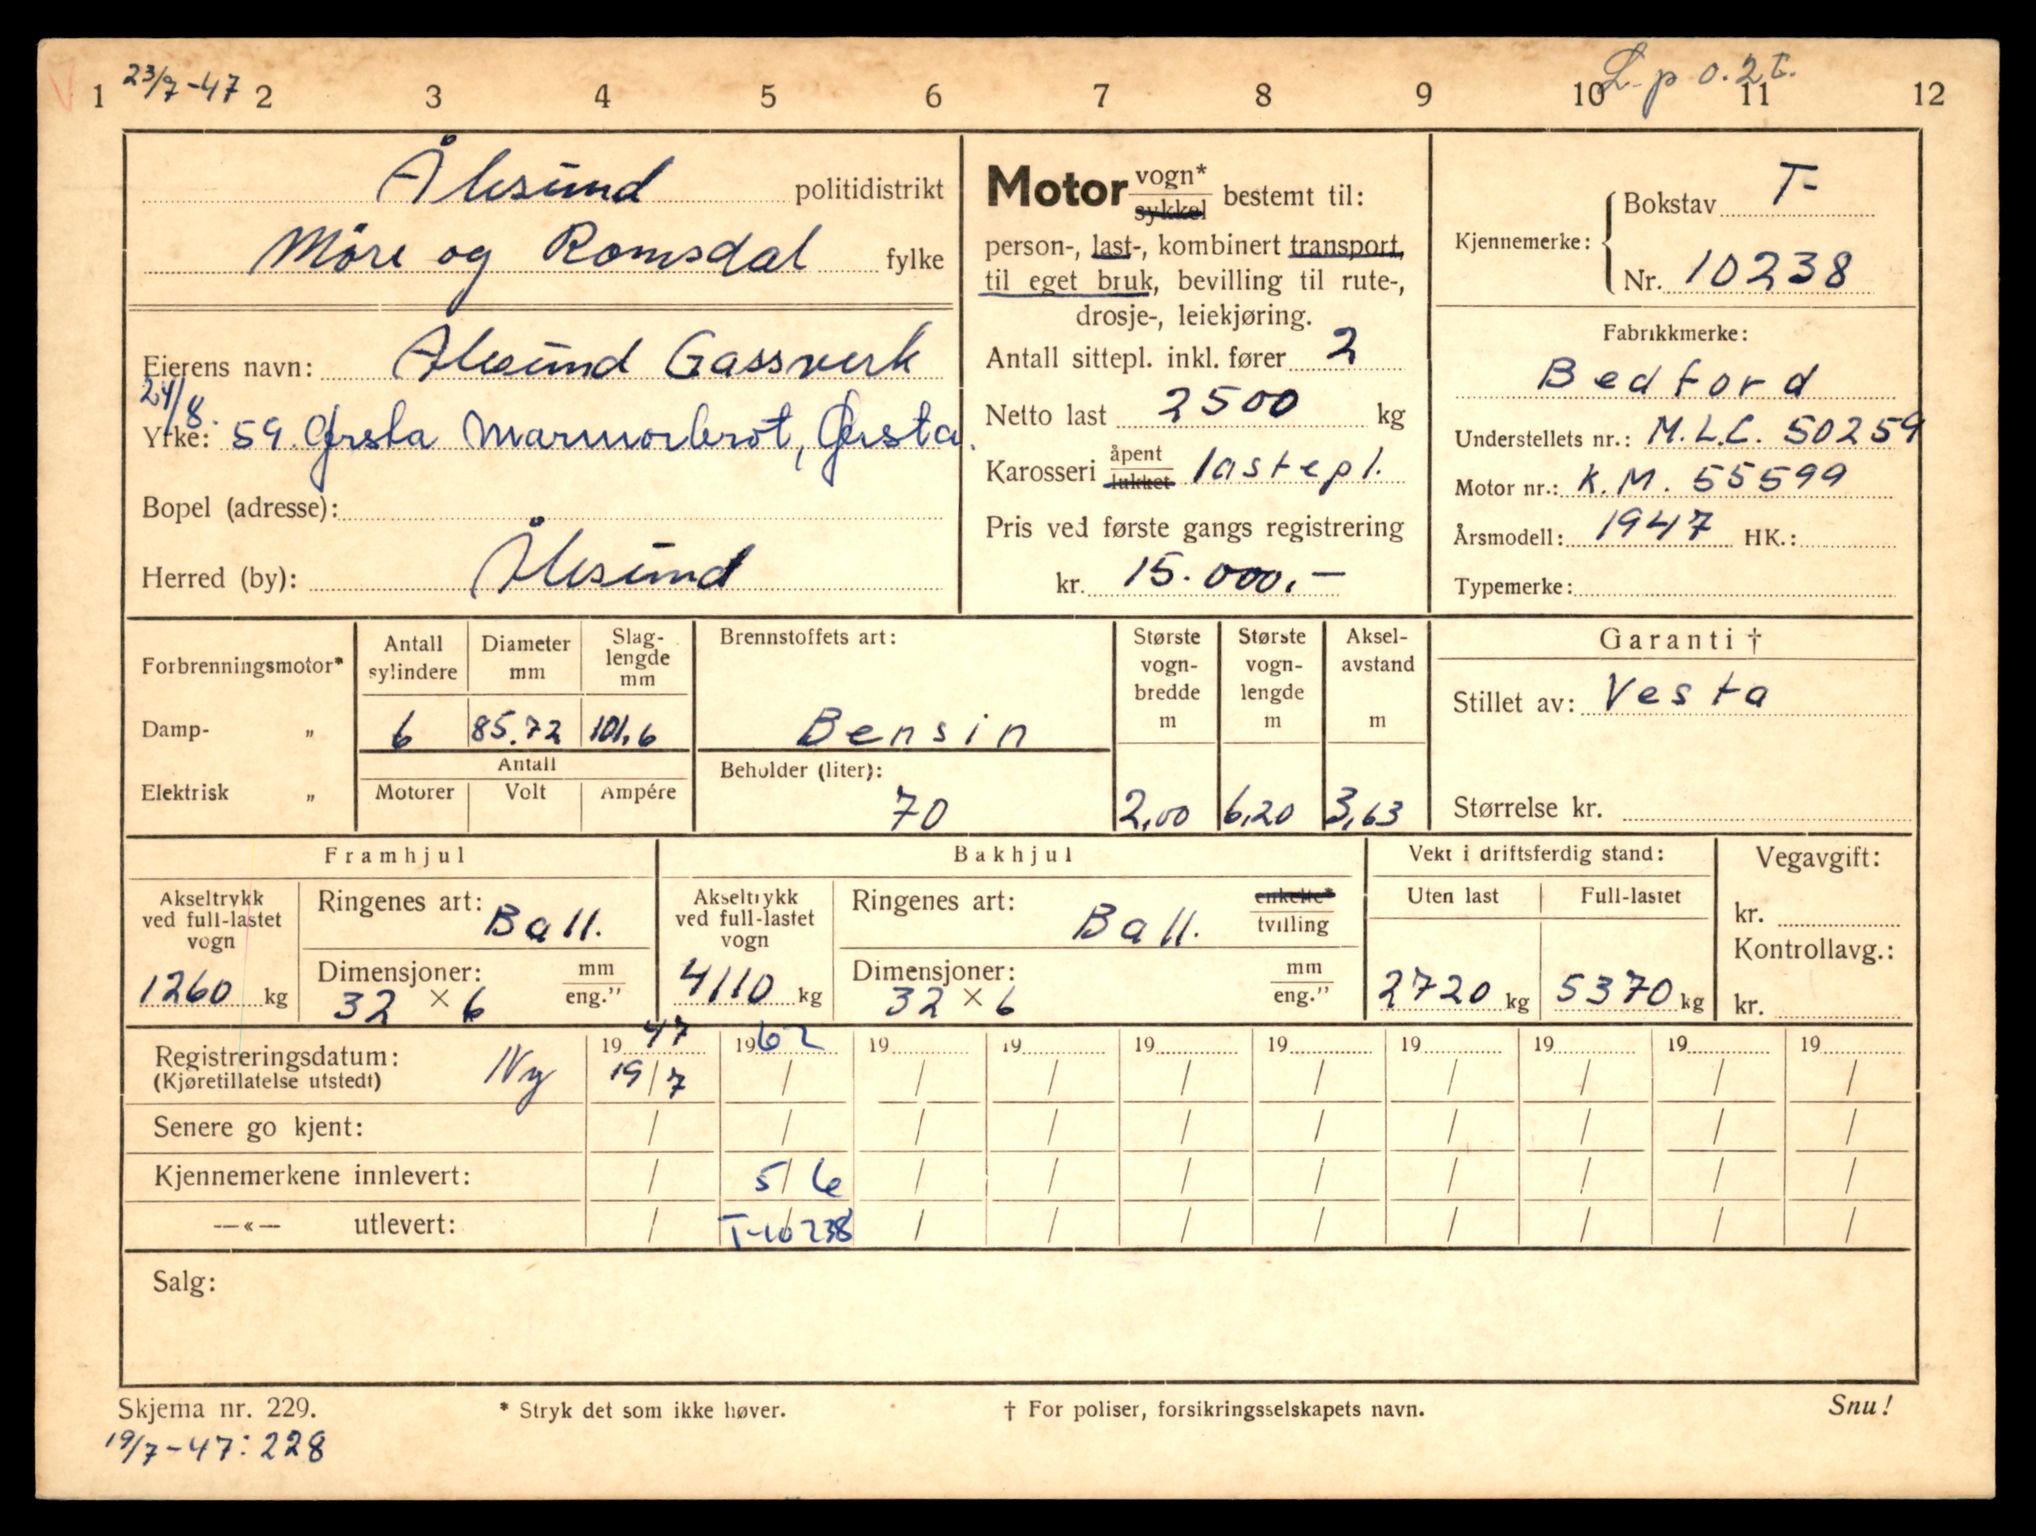 1 23/7-47 2 3 4 5 6 7 8 9 10 11 12
L. p o. 2 t.
Ålesund politidistrikt
Möre og Romsdal fylke
Eierens navn: Ålesund Gassverk
24/8.
Yrke: 59. Ørsta Marmorbrot, Ørsta.
Bopel (adresse):
Herred (by): Ålesund
Motor vogn* sykkel bestemt til:
person-, last-, kombinert transport,
til eget bruk, bevilling til rute-,
drosje-, leiekjøring.
Antall sittepl. inkl. fører 2
Netto last 2500 kg
Karosseri åpent lukket lastepl.
Pris ved første gangs registrering
kr. 15.000.—
Kjennemerke:
Bokstav T-
Nr. 10238
Fabrikkmerke:
Bedford
Understellets nr.: M.L.C. 50259
Motor nr.: K.M. 55599
Årsmodell: 1947 HK.:
Typemerke:
Forbrenningsmotor*
Damp- „
Elektrisk „
Antall sylindere
Diameter mm
Slag-lengde mm
6 85.72 101,6
Antall
Motorer Volt Ampére
Brennstoffets art:
Bensin
Beholder (liter):
70
Største vogn-bredde m
2,00
Største vogn-lengde m
6,20
Aksel-avstand m
3,63
Garanti †
Stillet av: Vesta
Størrelse kr.
Framhjul
Akseltrykk ved full-lastet vogn
1260 kg
Ringenes art: Ball.
Dimensjoner: mm eng."
32 × 6
Bakhjul
Akseltrykk ved full-lastet vogn
4110 kg
Ringenes art: Ball. enkelte* tvilling
Dimensjoner: mm eng."
32 × 6
Vekt i driftsferdig stand:
Uten last Full-lastet
2720 kg 5370 kg
Vegavgift:
kr.
Kontrollavg.:
kr.
Registreringsdatum: Ny 1947 1962 19 19 19 19 19 19 19 19
(Kjøretillatelse utstedt) 19/7 / / / / / / / / /
Senere go kjent: / / / / / / / / / /
Kjennemerkene innlevert: / 5/6 / / / / / / / /
—«— utlevert: / T-10238 / / / / / / / /
Salg:
Skjema nr. 229. * Stryk det som ikke høver. † For poliser, forsikringsselskapets navn. Snu!
19/7-47: 228